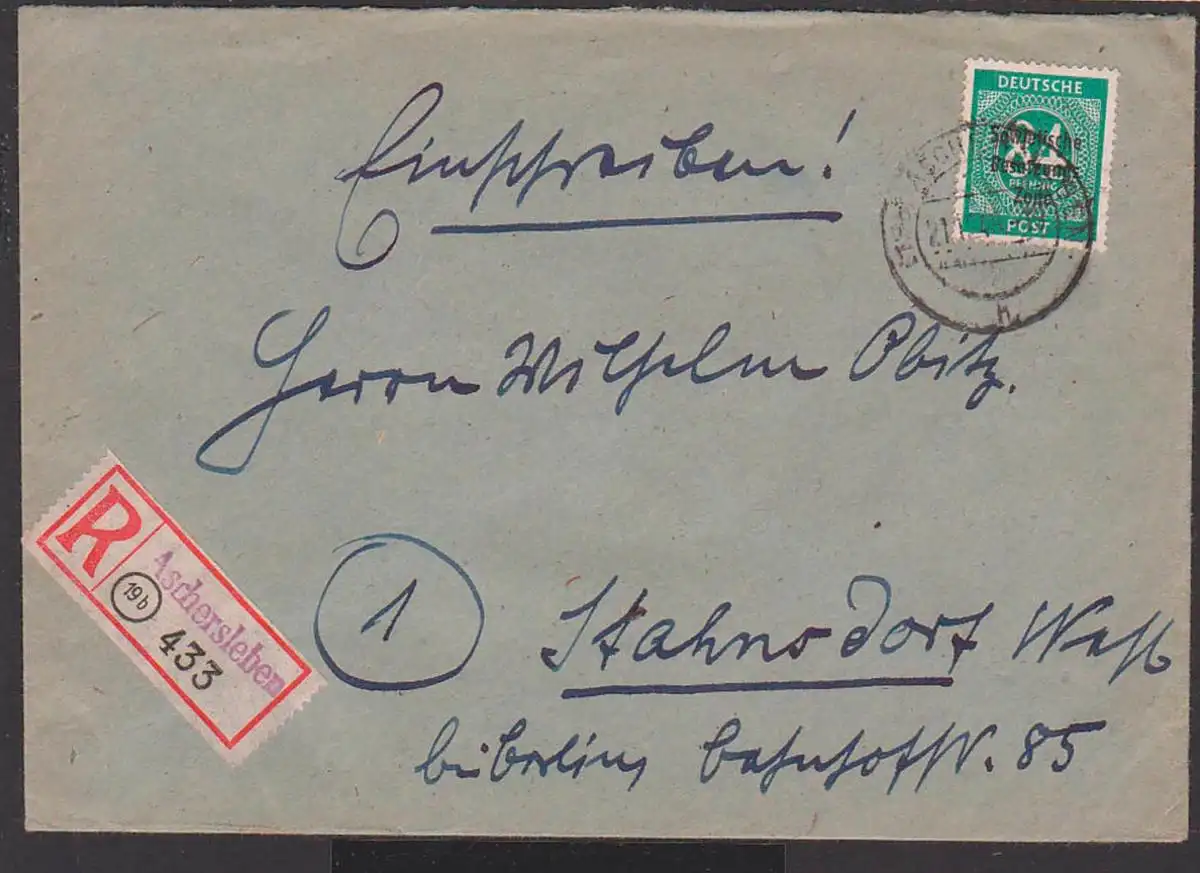 Einschreiben!
DEUTSCHE
84
Sowjetische
Besatzungs
PFENNIG
Zone
POST
Herrn Wilhelm Obitz.
R
Aschersleben
19b
433
1
Stahnsdorf West
bei Berlin, Bahnhofstr. 85
h